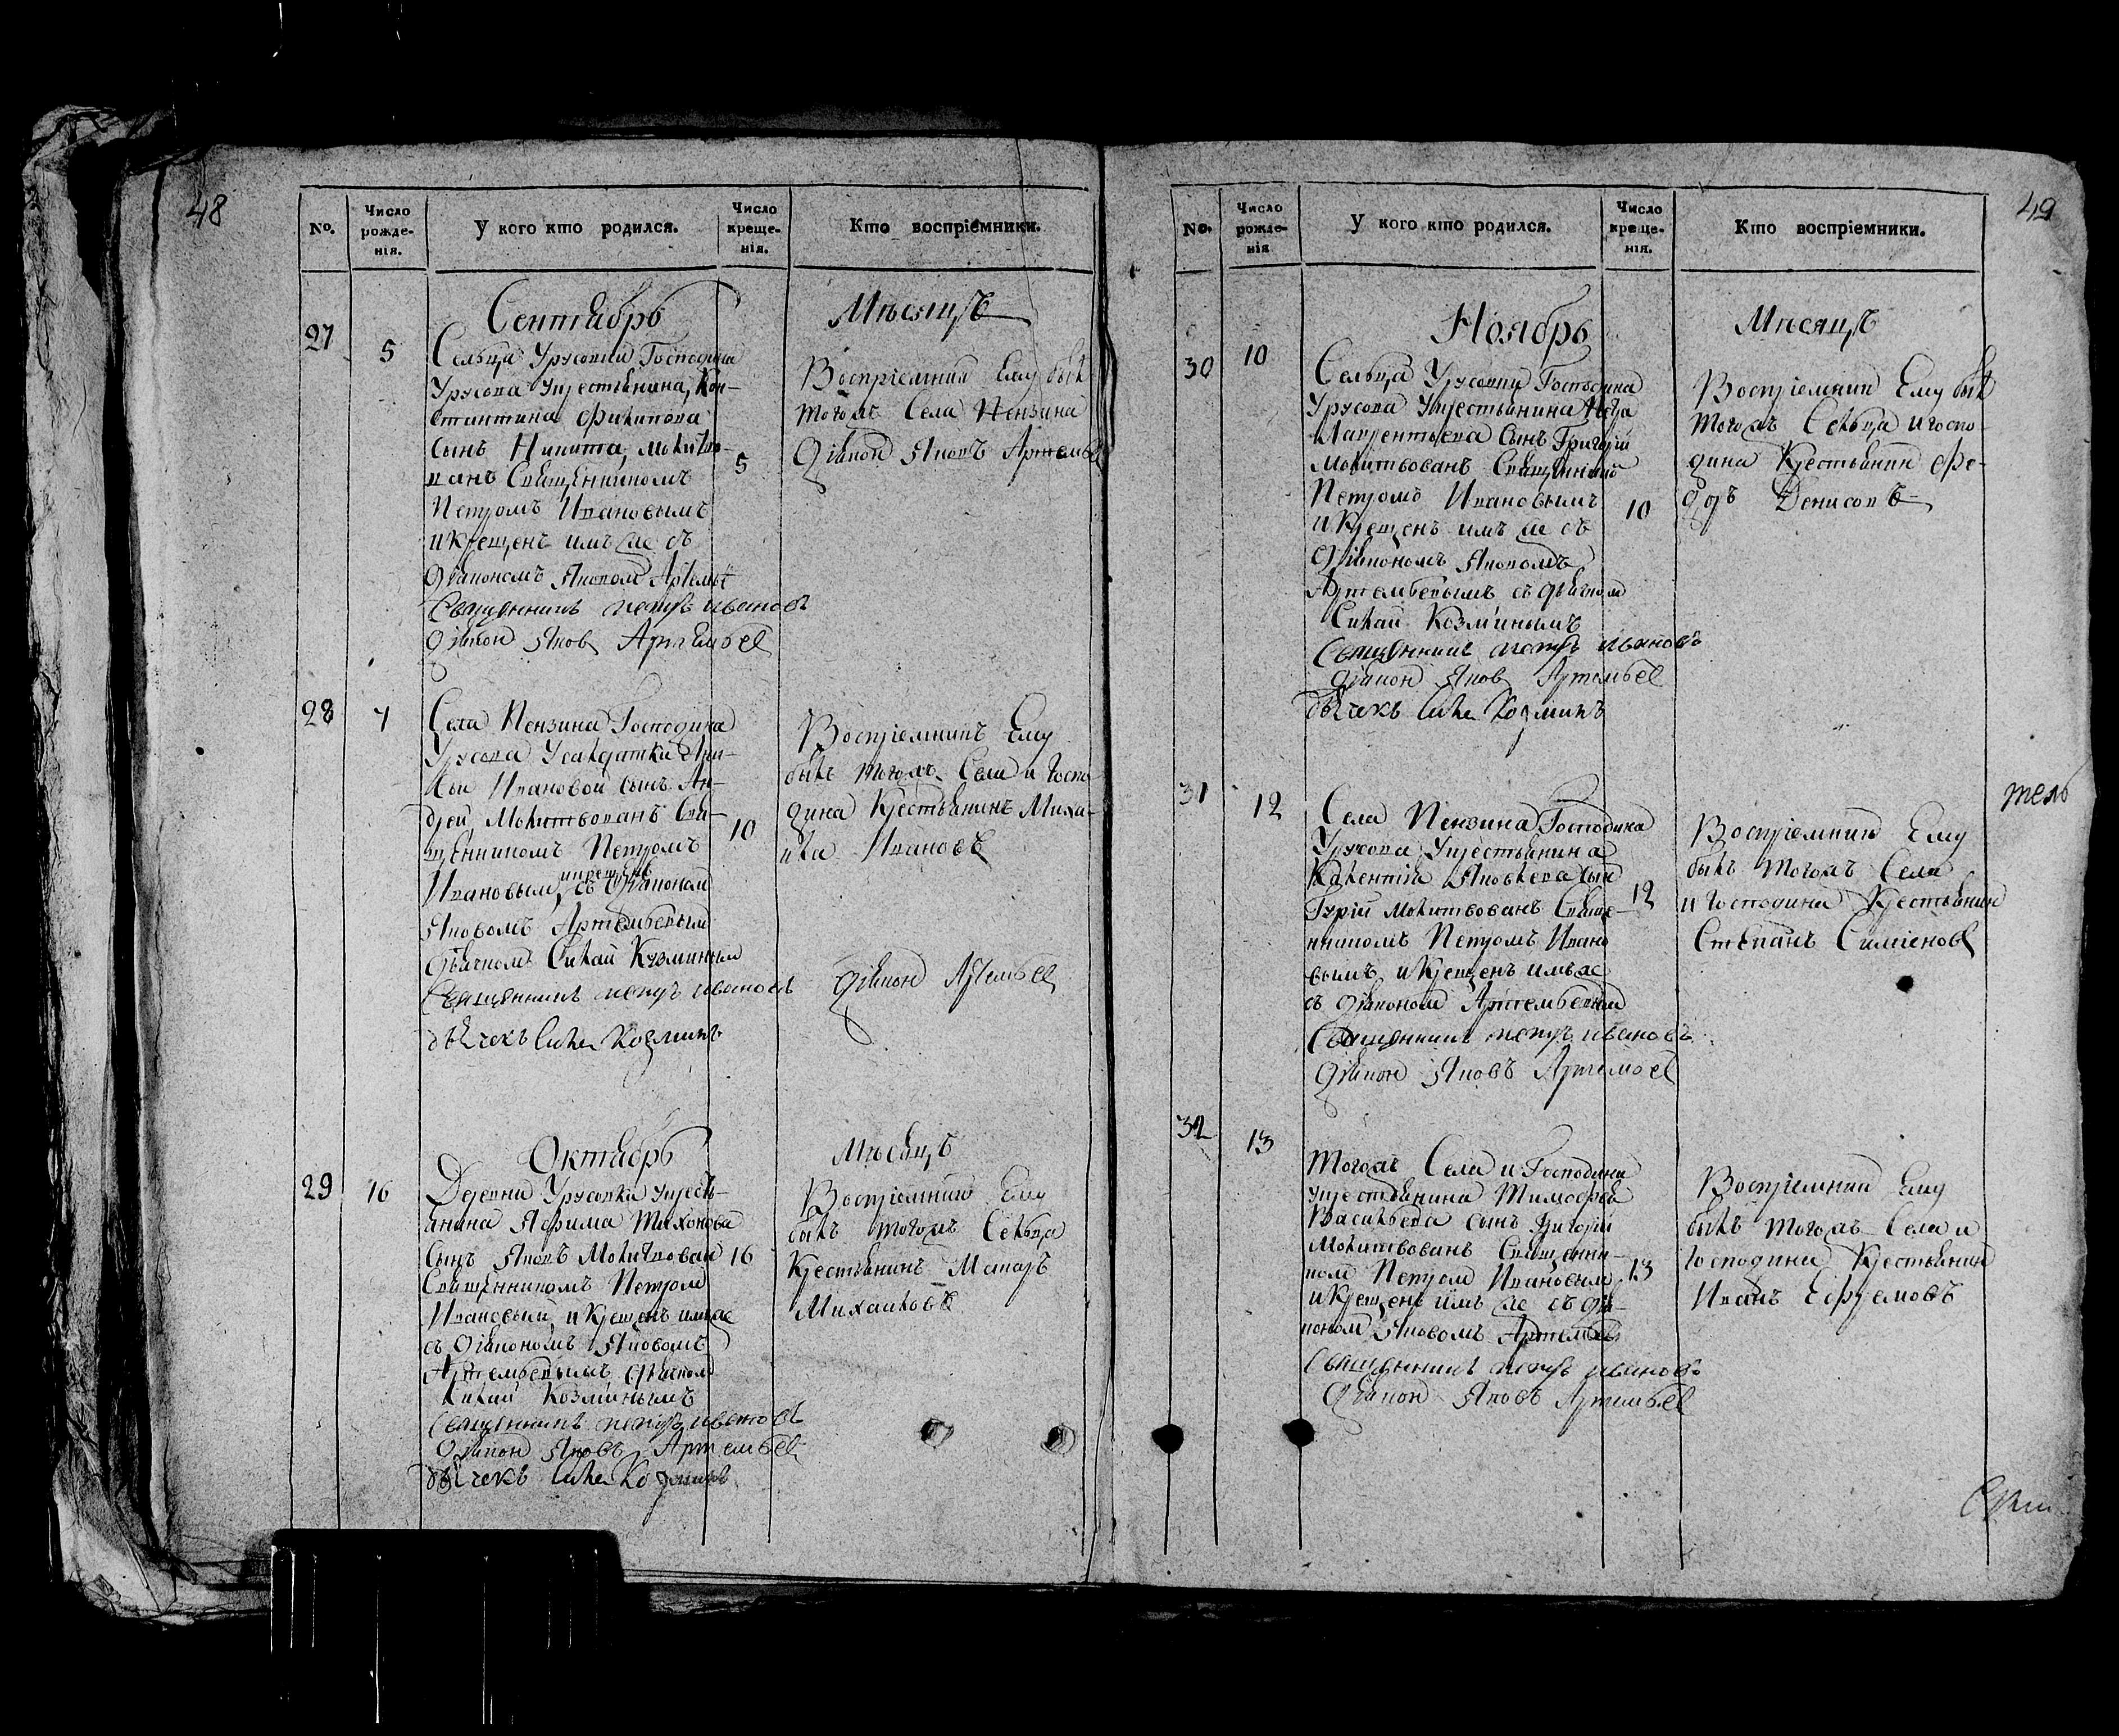 48
No.
Число рожде-нія.
У кого кто родился.
Число креще-нія.
Кто воспріемники.
Сентябрь Мѣсяцъ
27
5
Сельца Урусовки Господина
Урусова Укрестьянина, Кон-
стантина Филипова
сынъ Никита, молитво-
ванъ Священникомъ
5
Петромъ Ивановымъ
и крещенъ имъ же съ
діакономъ Яковом Артемье
Священникъ петръ ивановъ
Діакон Яков Артемьев
Воспріемник Ему был
тогожъ Села Пензина
Діакон Яковъ Артемье
28
7
Села Пензина Господина
Урусова Усалдатки
Ивановой сынъ Ан-
дрей Молитвованъ Свя-
щенникомъ Петромъ
10
Ивановым, икрещенъ съ Діаконом
Яковомъ Артемьевым
дьячкомъ Силай Козминым
Священникъ петръ ивановъ
дьячекъ Сила Козминъ
Воспріемникъ Ему
былъ тогожъ Села и Госпо-
дина Крестьянинъ Миха-
ила Ивановъ
Діакон Артемьев
Октябрь Мѣсяцъ
29
16
Деревни Урусовки укресть-
янина Тихонова
Сынъ Яковъ Молитвован
16
Священникомъ Петром
Ивановым, и Крещенъ имже
съ Діакономъ Яковомъ
Артемьевымъ дьячком
Силай Козминымъ
Священникъ петръ ивановъ
Діакон Яковъ Артемьев
дьячекъ Сила Козминъ
Воспріемник Ему
былъ тогожъ Сельца
Крестьянинъ Макаръ
Михаиловъ
49
No.
Число рожде-нія
У кого кто родился.
Число креще-нія.
Кто воспріемники.
Ноябрь Мѣсяцъ
30
10
Сельца Урусовки Господина
Урусова Укрестьянина
Лаврентьева сынъ Григорій
Молитвованъ Священнико
Петромъ Ивановымъ
10
и Крещенъ имъ же съ
Діакономъ Яковомъ
Артемьевымъ съ дьячком
Силай Козминымъ
Священникъ петръ ивановъ
Діакон Яков Артемьев
дьячекъ Сила Козминъ
Воспріемник Ему был
тогожъ Сельца и госпо-
дина Крестьянин Фе-
доръ Денисовъ
31
12
Села Пензина Господина
Урусова Укрестьянина
Яковлева сын
Гурій молитвованъ Свяще-
12
нникомъ Петромъ Ивано
вымъ и Крещенъ имъже
съ діаконом Артемьевым
Священникъ петръ ивановъ
Діакон Яковъ Артемьев
Воспріемник Ему
былъ тогожъ Села
и Господина Крестьянин
Степанъ Симіонов
тель
32
13
Тогожъ Села и Господина
укрестьянина Тимофея
Васильева сынъ Григорій
Молитвованъ Священни-
ком Петром Ивановым
13
и Крещенъ имъ же съ діа-
коном Яковомъ Артемьев
Священникъ петръ ивановъ
Діакон Яковъ Артемьев
Воспріемник Ему
былъ тогожъ Села и
Господина Крестьянин
Иванъ Ефремовъ